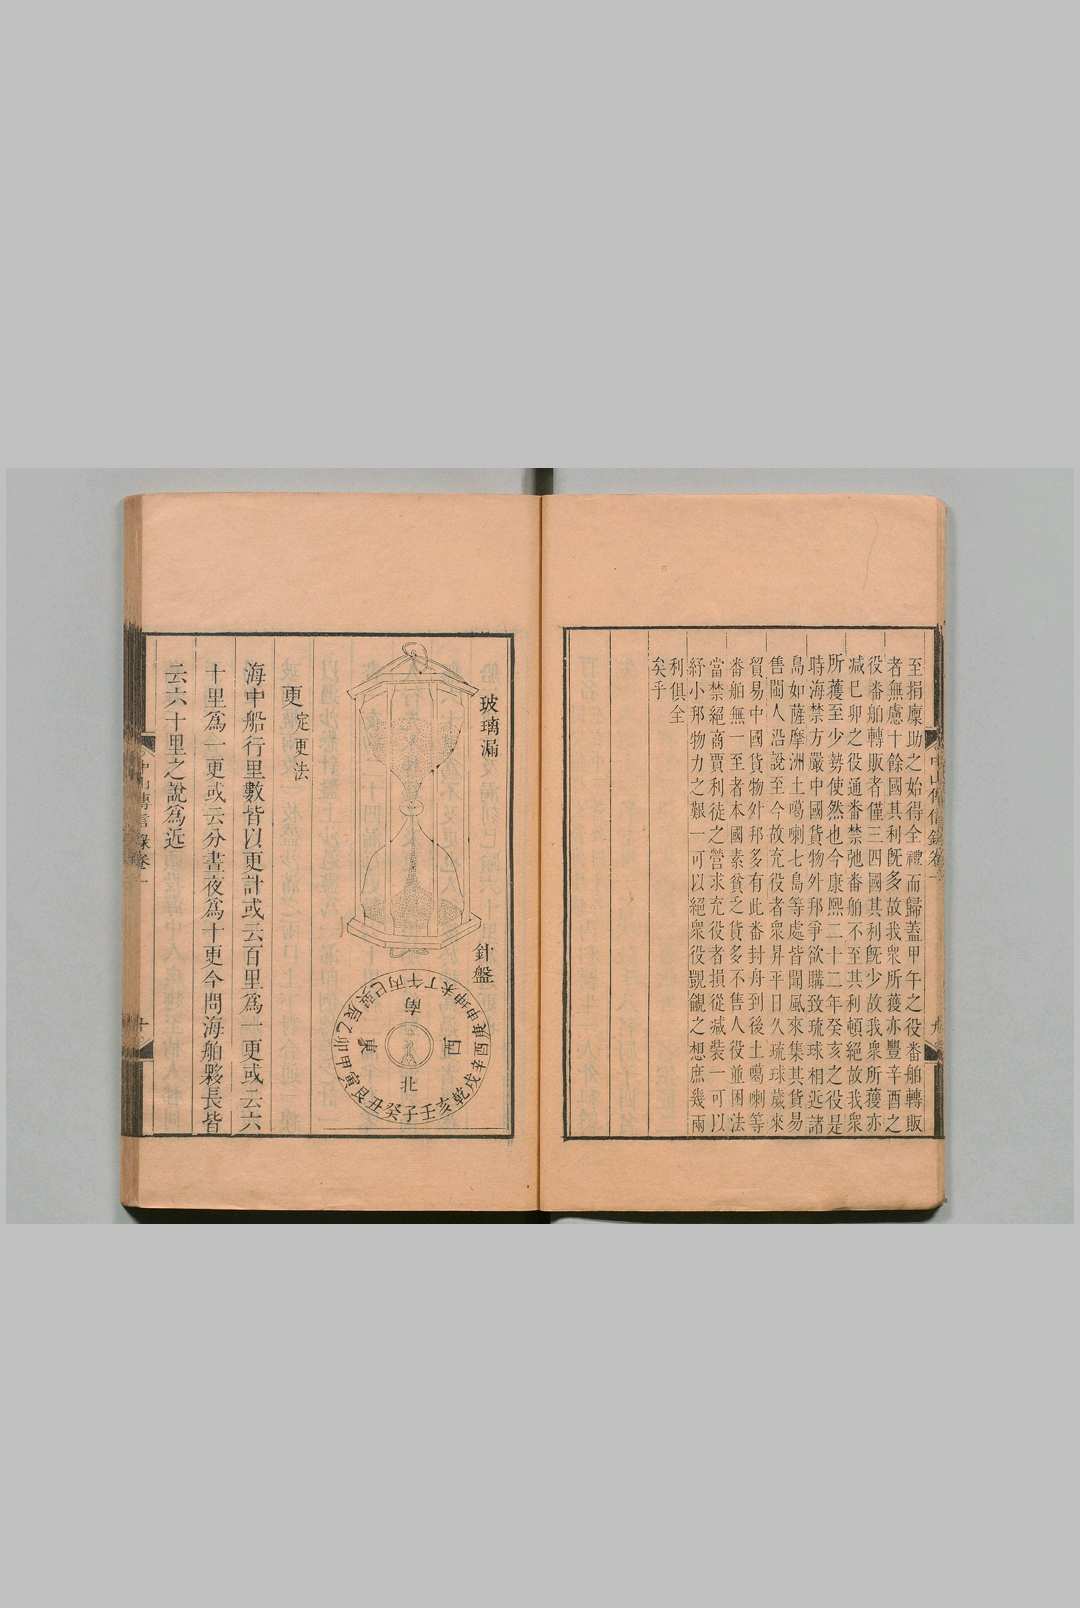 至捐廪助之始得全禮而歸蓋甲午之役畨舶轉販
者無慮十餘國其利旣多故我衆所獲亦豐辛酉之
役畨舶轉販者僅三四國其利旣少故我衆所獲亦
减巳卯之役通畨禁弛畨舶不至其利頓絕故我衆
所獲至少勢使然也今康熙二十二年癸亥之役是
時海禁方嚴中國貨物外邦爭欲購致琉球相近諸
島如薩摩洲土噶喇七島等處皆聞風來集其貨易
售閩人沿說至今故充役者衆昇平日久琉球歲來
貿易中國貨物外邦多有此畨封舟到後土噶喇等
畨舶無一至者本國素貧乏貨多不售人役並困法
當禁絕商賈利徒之營求充役者損從减裝一可以
紓小邦物力之艱一可以絕衆役覬覦之想庶幾兩
利俱全
矣乎
中山傳信錄卷一
九
玻璃漏
針盤
南
東
西
北
子癸丑艮寅甲卯乙辰巽巳丙午丁未坤申庚酉辛戌乾亥壬
更定更法
海中船行里數皆以更計或云百里爲一更或云六
十里爲一更或云分晝夜爲十更今問海舶夥長皆
云六十里之說爲近
中山傳信錄卷一
十